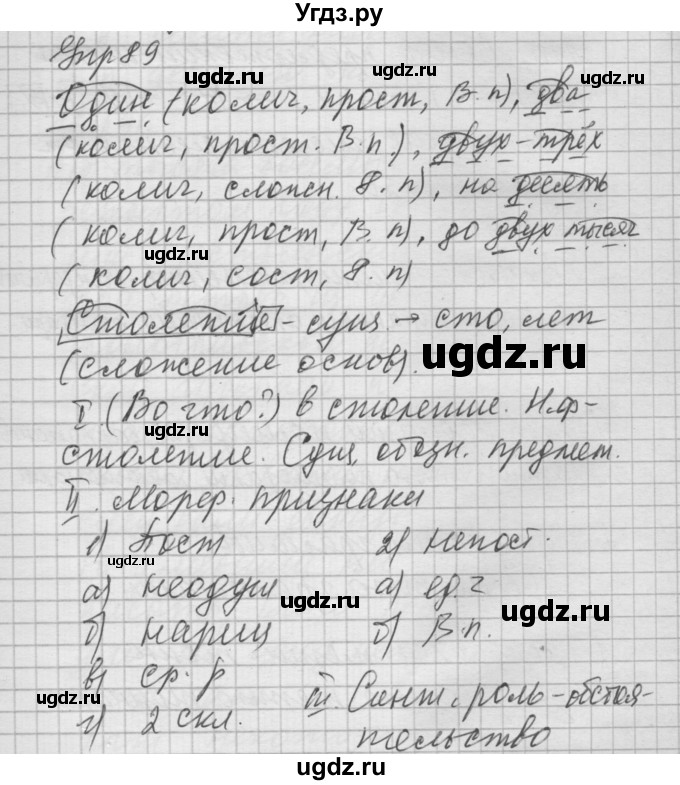 Угдз.ру
Упр 89
ugdz.ru ugdz.ru
Один (колич, прост, В.п), два
(колич, прост. В.п), двух-трёх
ugdz.ru
(колич, сложн. Р.п), на десять
ugdz.ru
(колич, прост, В.п), до двух тысяч
ugdz.ru
(колич, сост, Р.п)
Столетие - сущ → сто, лет
(сложение основ).
ugdz.ru
I (Во что?) в столетие. Н.ф-
столетие. Сущ, обозн. предмет.
II. Морф. признаки
1) Пост 2) непост.
ugdz.ru
а) неодуш а) ед.ч
ugdz.ru ugdz.ru
б) нариц б) В.п.
в) ср. р
ugdz.ru
III. Синт. роль - обстоя-
г) 2 скл.
тельство
ugdz.ru
ugdz.ru